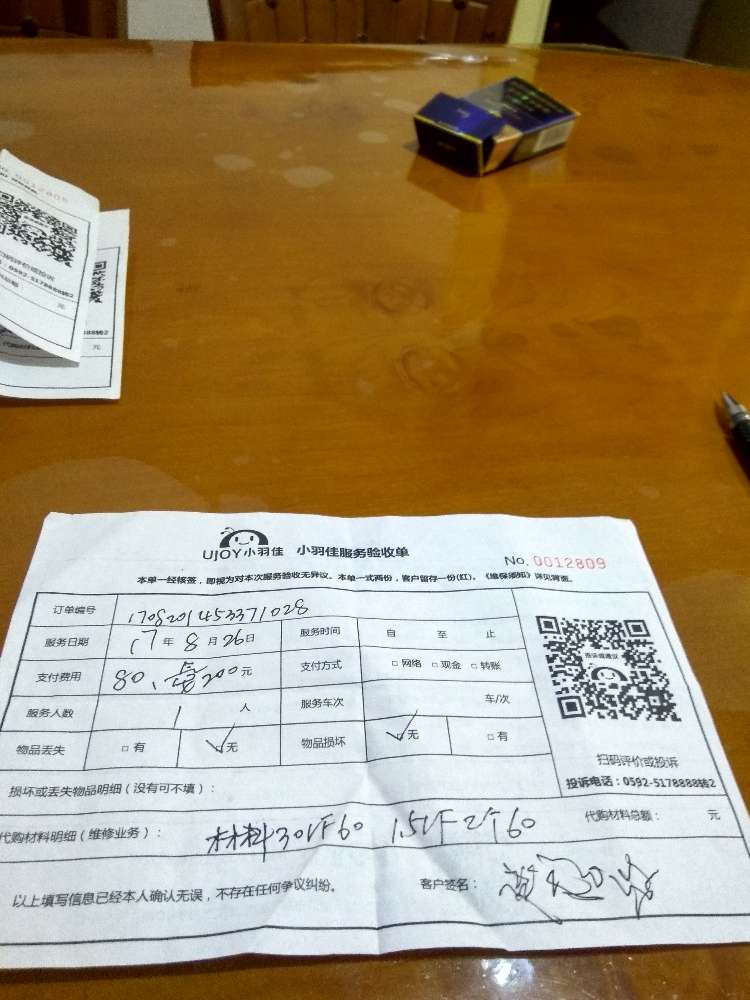 0012808
扫码评价或投诉
0592-5178888转2
元
888转2
元
UJOY小羽佳 小羽佳服务验收单
No. 0012809
本单一经核签，即视为对本次服务验收无异议。本单一式两份，客户留存一份(红)。《维保须知》详见背面。
订单编号 170820145337 1028
服务日期 17 年 8 月 26 日 服务时间 自 至 止
支付费用 80、 200元 支付方式 □网络 □现金 □转账
服务人数 1 人 服务车次 车/次
物品丢失 □有 ☑无 物品损坏 ☑无 □有
投诉或建议
扫码评价或投诉
投诉电话：0592-5178888转2
损坏或丢失物品明细（没有可不填）：
代购材料明细（维修业务）： 材料30VF60 1.5VF2个60 代购材料总额： 元
以上填写信息已经本人确认无误，不存在任何争议纠纷。 客户签名：